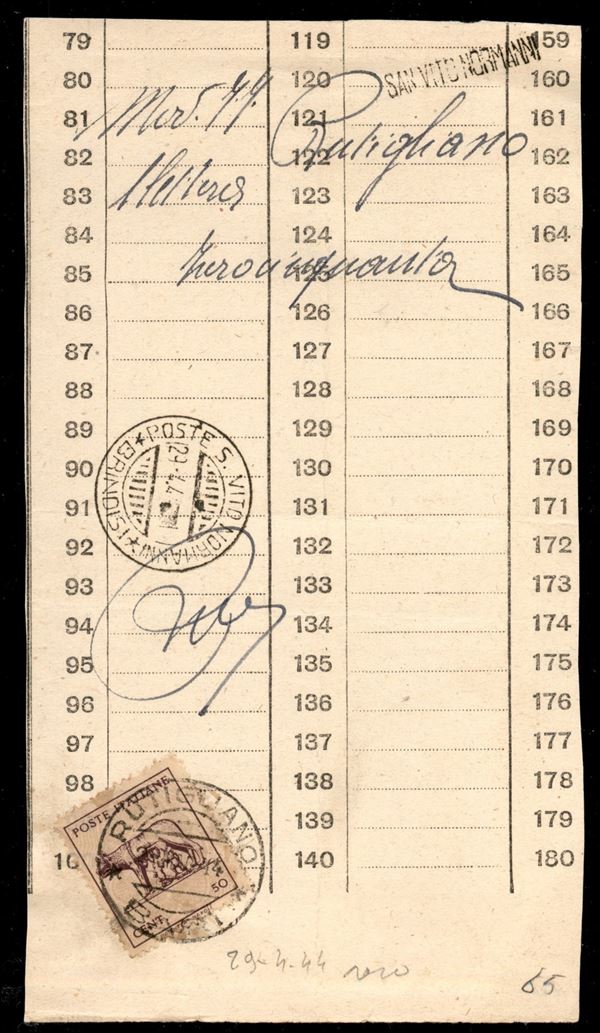 79 119 159
SAN VITO NORMANNI
80 120 160
Mod. 74.
81 121 161
Rutigliano
82 122 162
83 123 163
84 124 164
Zerocinquanta
85 125 165
86 126 166
87 127 167
88 128 168
89 129 169
POSTE S. VITO NORMANNI
(BRINDISI)
90 130 170
91 131 171
92 132 172
93 133 173
94 134 174
95 135 175
96 136 176
97 137 177
98 138 178
POSTE ITALIANE
RUTIGLIANO
BARI
139 179
140 180
CENT. 50
29-4-44 raro
65